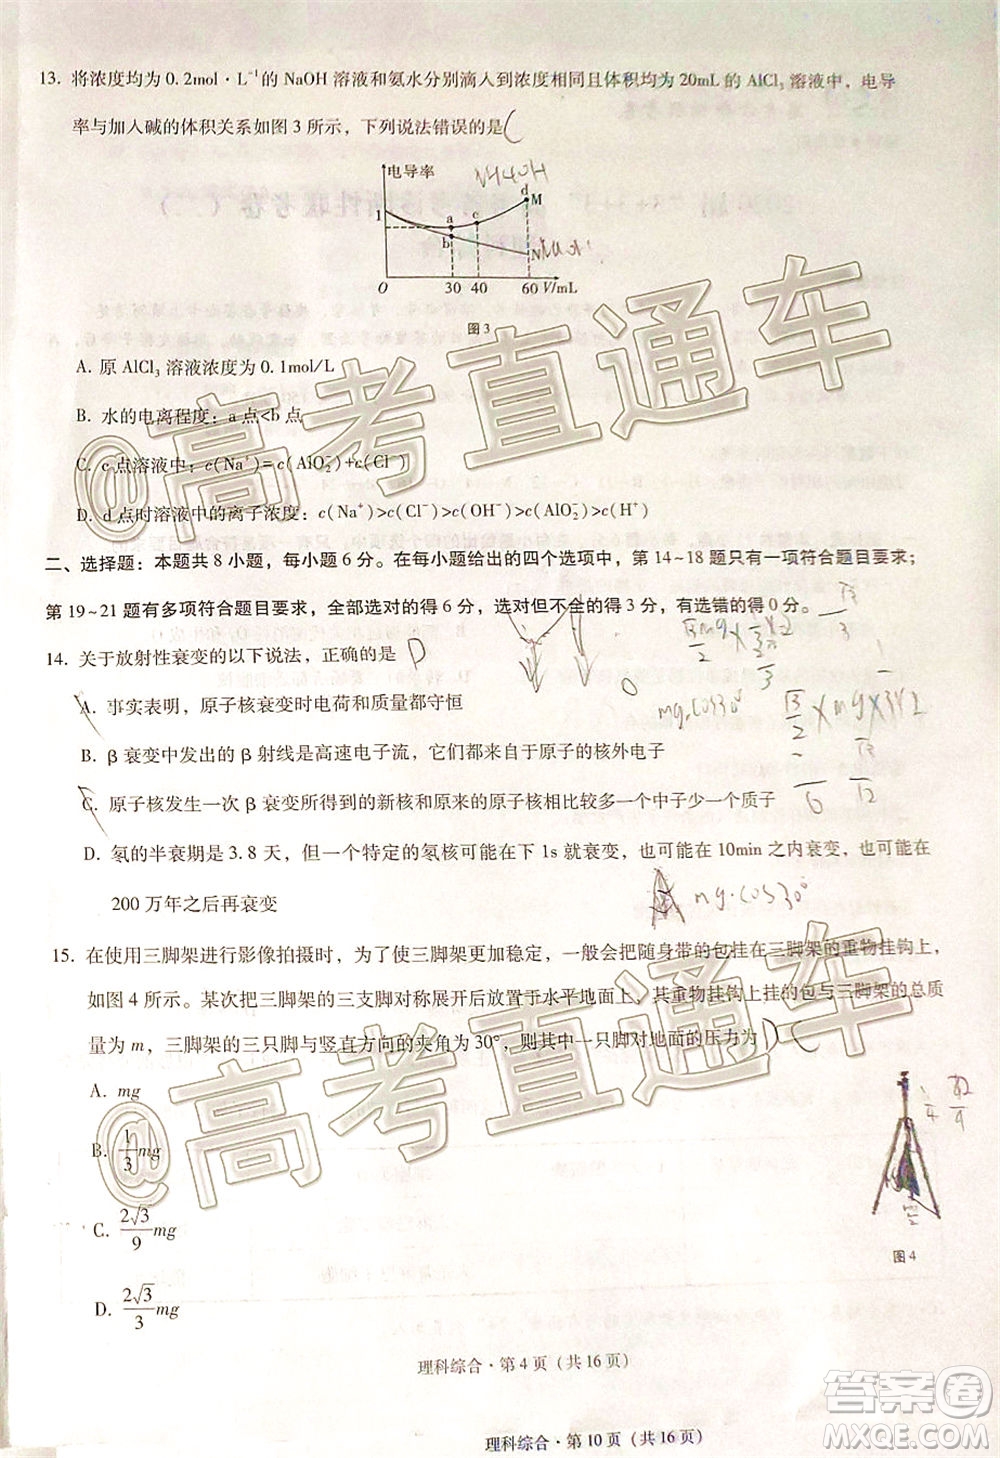 13. 将浓度均为 0.2mol·L⁻¹的 NaOH 溶液和氨水分别滴人到浓度相同且体积均为 20mL 的 AlCl₃ 溶液中，电导
率与加人碱的体积关系如图 3 所示，下列说法错误的是 C
电导率
NH4OH
d
M
1
a
c
b
N
O
30
40
60
V/mL
图 3
A. 原 AlCl₃ 溶液浓度为 0.1mol/L
B. 水的电离程度：a 点<b 点
C. c 点溶液中：c(Na⁺)=c(AlO₂⁻)+c(Cl⁻)
D. d 点时溶液中的离子浓度：c(Na⁺)>c(Cl⁻)>c(OH⁻)>c(AlO₂⁻)>c(H⁺)
二、选择题：本题共 8 小题，每小题 6 分。在每小题给出的四个选项中，第 14~18 题只有一项符合题目要求；
第 19~21 题有多项符合题目要求，全部选对的得 6 分，选对但不全的得 3 分，有选错的得 0 分。
14. 关于放射性衰变的以下说法，正确的是 D
A. 事实表明，原子核衰变时电荷和质量都守恒
mg·cos30°
B. β 衰变中发出的 β 射线是高速电子流，它们都来自于原子的核外电子
C. 原子核发生一次 β 衰变所得到的新核和原来的原子核相比较多一个中子少一个质子
D. 氡的半衰期是 3.8 天，但一个特定的氡核可能在下 1s 就衰变，也可能在 10min 之内衰变，也可能在
200 万年之后再衰变
mg·cos30°
15. 在使用三脚架进行影像拍摄时，为了使三脚架更加稳定，一般会把随身带的包挂在三脚架的重物挂钩上，
如图 4 所示。某次把三脚架的三支脚对称展开后放置于水平地面上，其重物挂钩上挂的包与三脚架的总质
量为 m，三脚架的三只脚与竖直方向的夹角为 30°，则其中一只脚对地面的压力为
A. mg
B. 1/3 mg
C. 2√3/9 mg
D. 2√3/3 mg
图 4
理科综合·第 4 页（共 16 页）
理科综合·第 10 页（共 16 页）
@高考直通车
@高考直通车
答案圈
MXQE.COM